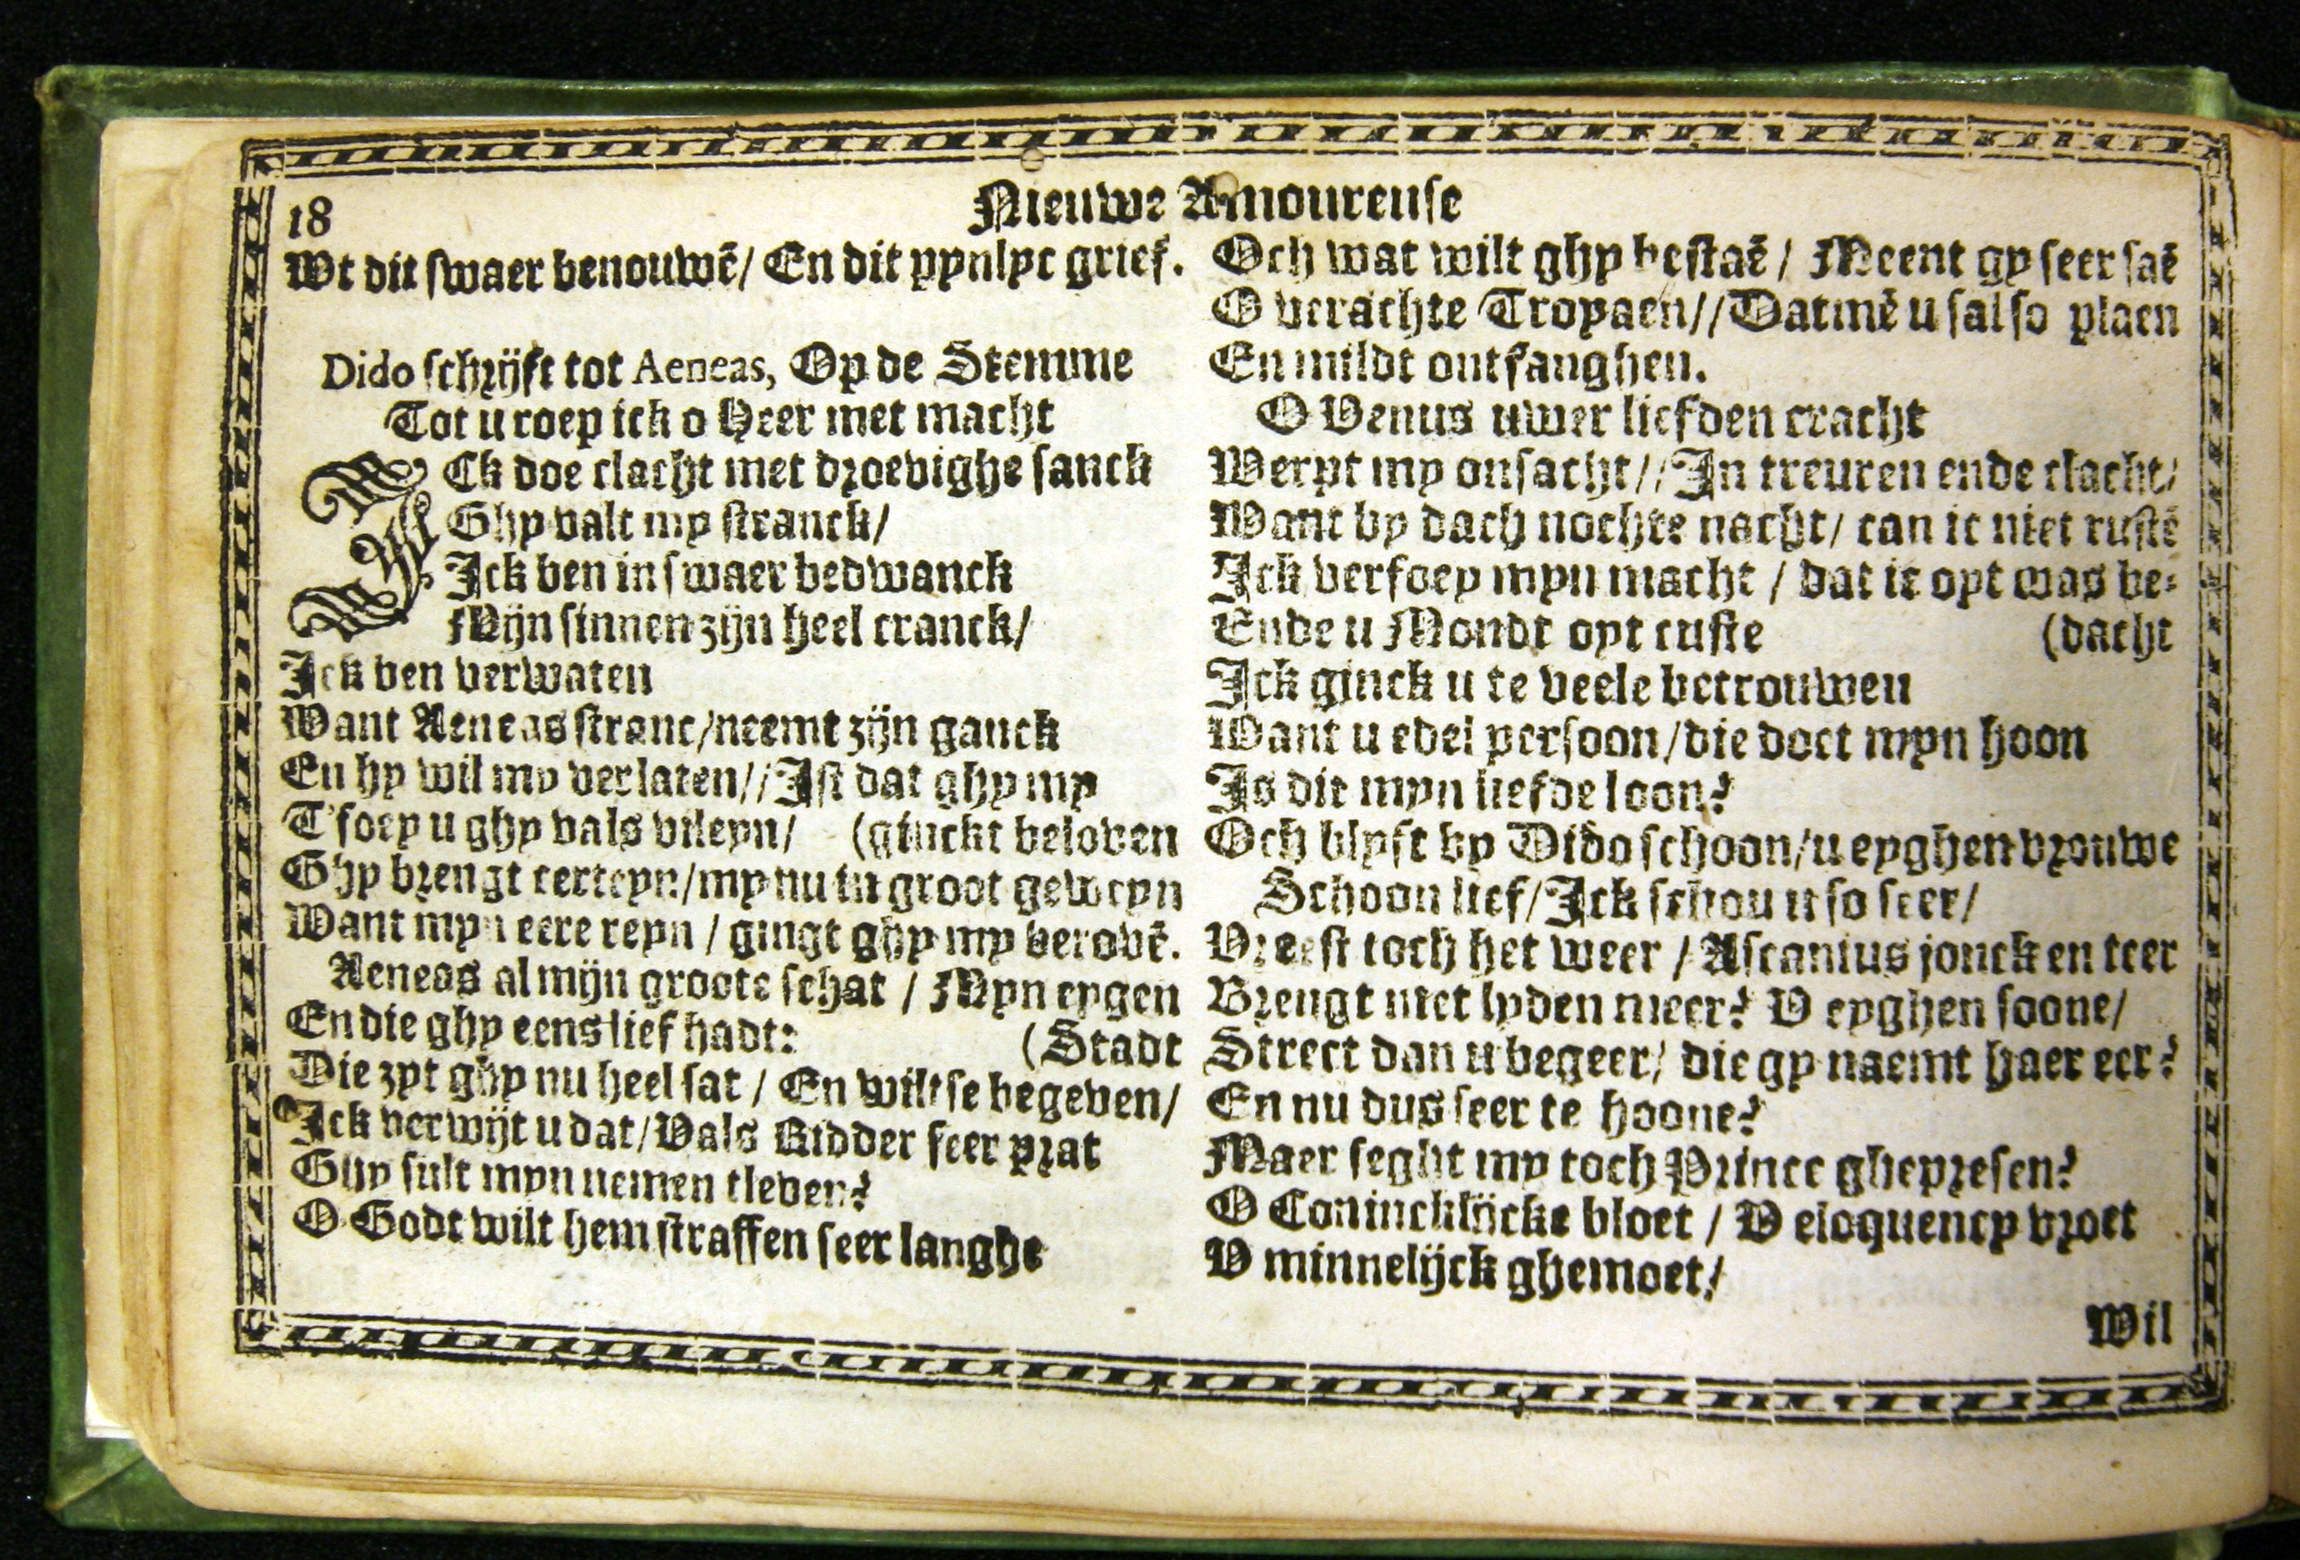 18
Nieuwe Amoureuse
Wt dit swaer benouwē/ En dit pynlyc grief.
Dido schrijft tot Aeneas, Op de Stemme
Tot u roep ick o Heer met macht
ICk doe clacht met droevighe sanck
Ghy valt my stranck/
Ick ben in swaer bedwanck
Mijn sinnen zijn heel cranck/
Ick ben verwaten
Want Aeneas stranc/neemt zijn ganck
En hy wil my verlaten//Ist dat ghy my
T'foey u ghy vals vileyn/ (gluckt beloven
Ghy brengt certeyn/my nu in groot geweyn
Want myn eere reyn / gingt ghy my berovē.
Aeneas al mijn groote schat / Myn eygen
En die ghy eens lief hadt: (Stadt
Die zyt ghy nu heel sat / En wiltse begeven/
Ick verwijt u dat/Vals Ridder seer prat
Ghy sult myn nemen tleven?
O Godt wilt hem straffen seer langhe
Och wat wilt ghy bestaē / Meent gy seer saē
O verachte Troyaen//Datmē u sal so plaen
En mildt ontfanghen.
O Venus uwer liefden cracht
Werpt my onsacht//In treuren ende clacht/
Want by dach nochte nacht/ can ic niet rustē
Ick verfoey myn macht / dat ic oyt was be-
Ende u Mondt oyt custe (dacht
Ick ginck u te veele betrouwen
Want u edel persoon/die doet myn hoon
Is dit myn liefde loon?
Och blyft by Dido schoon/u eyghen vrouwe
Schoon lief/Ick schou u so seer/
Vreest toch het weer / Ascanius jonck en teer
Brengt niet lyden meer? V eyghen soone/
Strect dan u begeer/ die gy naemt haer eer?
En nu dus seer te hoone?
Maer seght my toch Prince ghepresen?
O Conincklijcke bloet / V eloquency vroet
V minnelijck ghemoet/
Wil